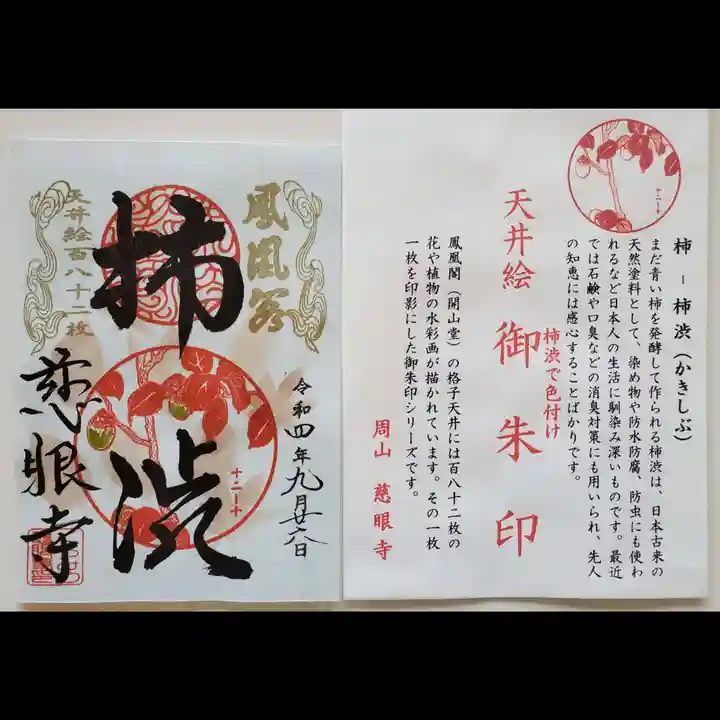 鳳凰閣
天井絵百八十二枚
柿渋
令和四年九月廿八日
慈眼寺
十二ー十
十二ー十
柿 - 柿渋(かきしぶ)
まだ青い柿を発酵して作られる柿渋は、日本古来の
天然塗料として、染め物や防水防腐、防虫にも使わ
れるなど日本人の生活に馴染み深いものです。最近
では石鹸や口臭などの消臭対策にも用いられ、先人
の知恵には感心することばかりです。
柿渋で色付け
天井絵 御朱印
鳳凰閣(開山堂)の格子天井には百八十二枚の
花や植物の水彩画が描かれています。その一枚
一枚を印影にした御朱印シリーズです。
周山 慈眼寺